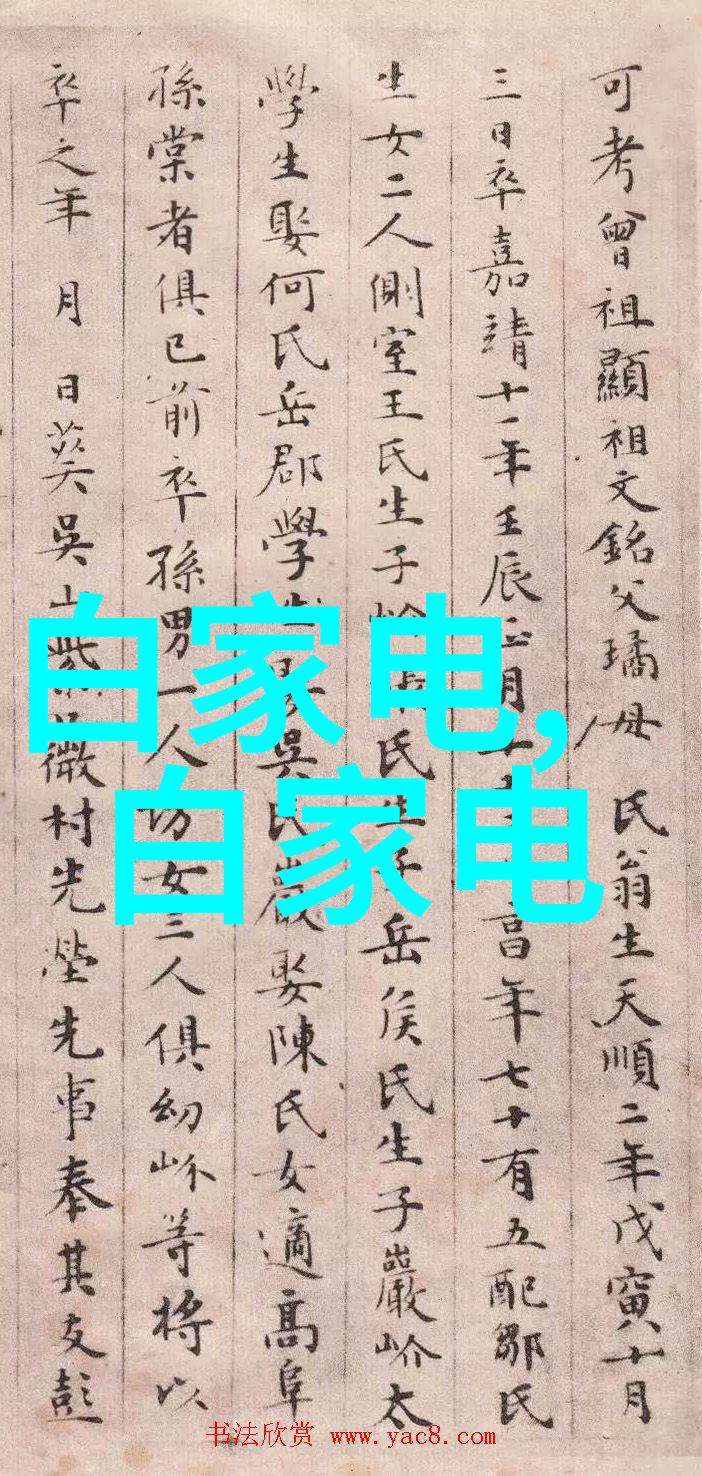 可考曾祖顯祖文銘父璚母 氏翁生天順二年戊寅十月
三日卒嘉靖十一年壬辰正月高年七十有五配鄒氏
生女二人側室王氏生子氏生子岳侯氏生子巖岕太
學生娶何氏岳郡學生娶吳氏巖娶陳氏女適高阜
孫棠者俱已前卒孫男一人女三人俱幼岕等將以
卒之年 月 日葬吳山村先塋先事奉其友彭
白家电,
白家电
书法欣赏 www.yac8.com